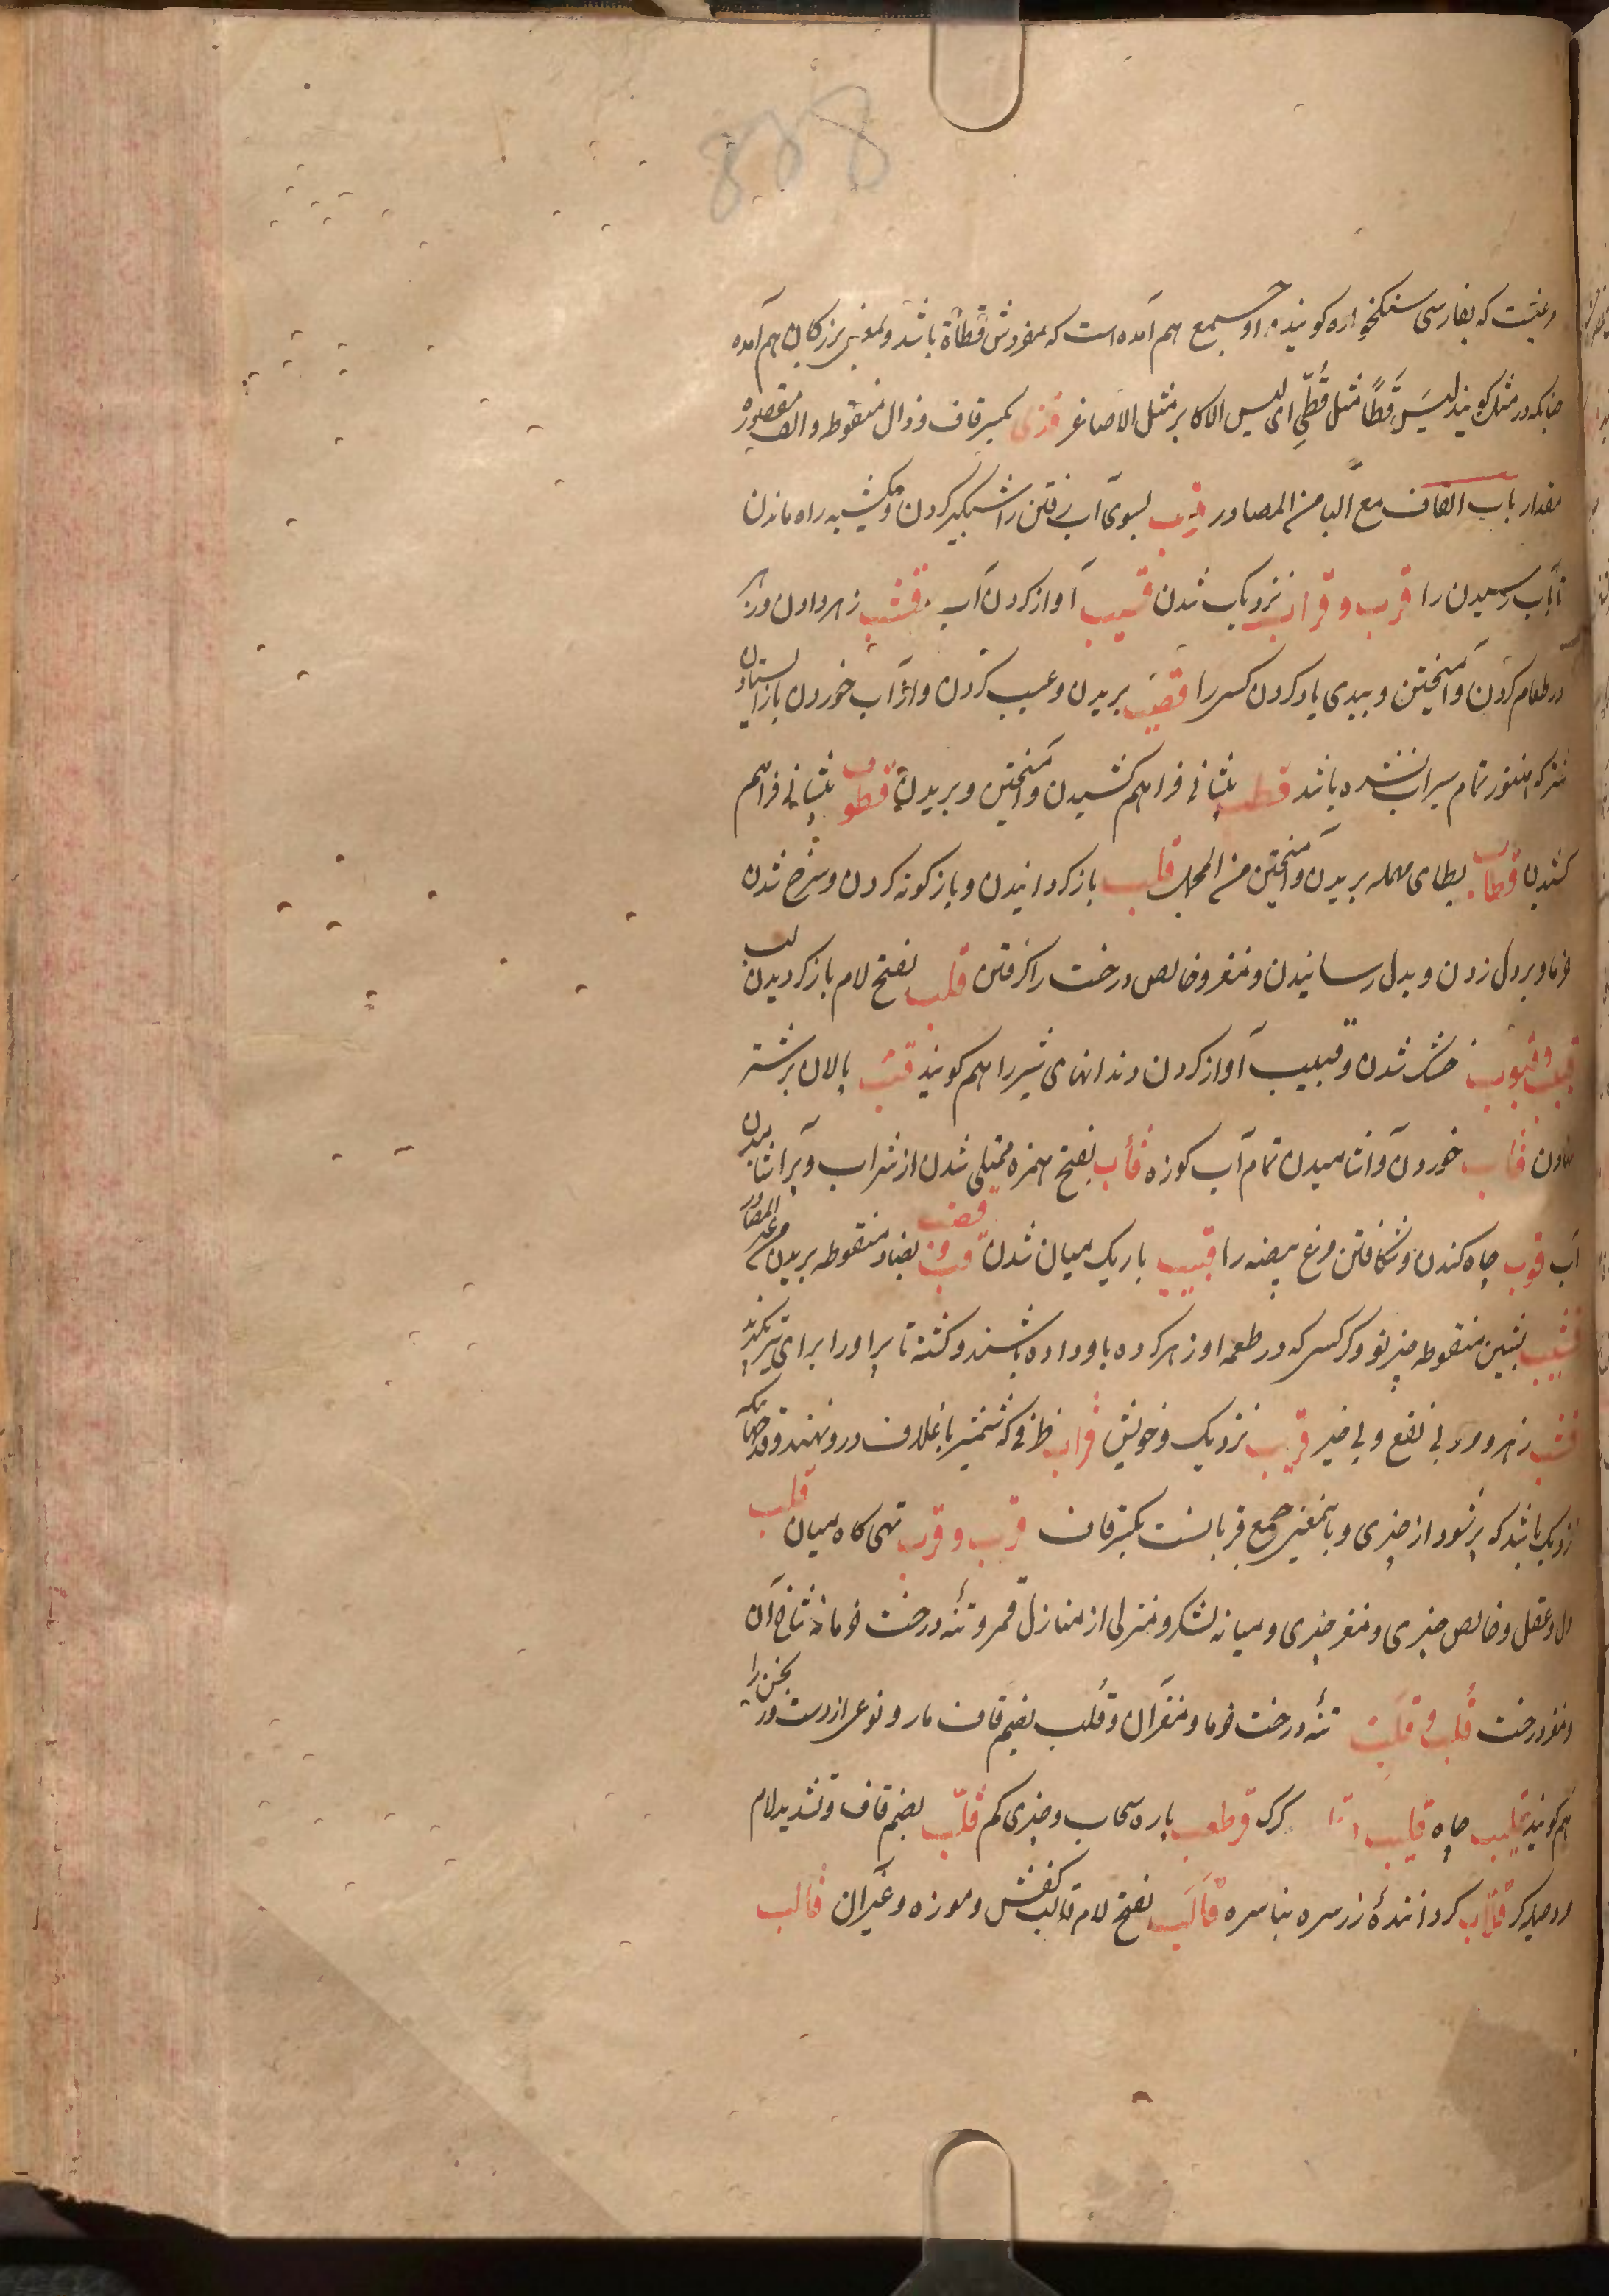 888
مرغیست که بفارسی سنکخواره کویند و او جمع هم آمده است که مفردش قطاة باشد و بمعنی بزرکان هم آمده
چنانکه در مثل کویند لیس قطاً مثل قُطَیٍّ ای لیس الاکابر مثل الاصاغر قذی بکسر قاف و ذال منقوطه و الف مقصوره
مقدار باب القاف مع البا من المصادر قرب بسوی آب رفتن را شبکیر کردن و یکشبه راه ماندن
تا بآب رسیدن را قرب و قراب نزدیک شدن قسیب آواز کردن آب قشب زهر دادن و زهر
در طعام کردن و آمیختن و ببدی یاد کردن کسی را قصب بریدن و عیب کردن و از آب خوردن باز ایستادن
شتر که هنوز تمام سیراب نشده باشد قطب پیشانی فراهم کشیدن و آمیختن و بریدن قطوب پیشانی فراهم
کشیدن قطاب بطای مهمله بریدن و آمیختن من المحال قلب باز کردانیدن و باز کونه کردن و سرخ شدن
خرما و بر دل زدن و بدل رسانیدن و مغز و خالص درخت را کرفتن قلب بفتح لام باز کردیدن لب
قب و قبوب خشک شدن و قبیب آواز کردن دندانهای شیر را هم کویند قتب پالان بر شتر
نهادن قأب خوردن و آشامیدن تمام آب کوزه قأب بفتح همزه ممتلی شدن از شراب و پر آشامیدن
آب قوب چاه کندن و شکافتن مرغ بیضه را قبیب باریک میان شدن قب و قضب بضاد منقوطه بریدن من غیر المصادر
قشیب بشین منقوطه چیز نو و کرکسی که در طعمه او زهر کرده باو داده باشند و کشته تا پر او را برای تیر بکیرند
قشب زهر و مرد بی نفع و بی خیر قریب نزدیک و خویش قراب ظرفی که شمشیر با غلاف درو نهند و قدحی که
نزدیک باشد که پر شود از چیزی و باینمعنی جمع قربانست بکسر قاف قرب و قرب تهی کاه میان قلب
دل و عقل و خالص چیزی و مغز چیزی و میانه لشکر و منزلی از منازل قمر و تنه درخت خرما نه شاخ آن
و مغز درخت قُلب و قلب تنه درخت خرما و مغز آن و قلب بضم قاف مار و نوعی از دست ورنجن را
هم کویند قلیب چاه قلیب کرک قرطعب پاره سحاب و چیزی کم قلّب بضم قاف و تشدید لام
مرد حیله کر قلّاب کرداننده زر سره بناسره قالَب بفتح لام قالب کفش و موزه و غیر آن قالب